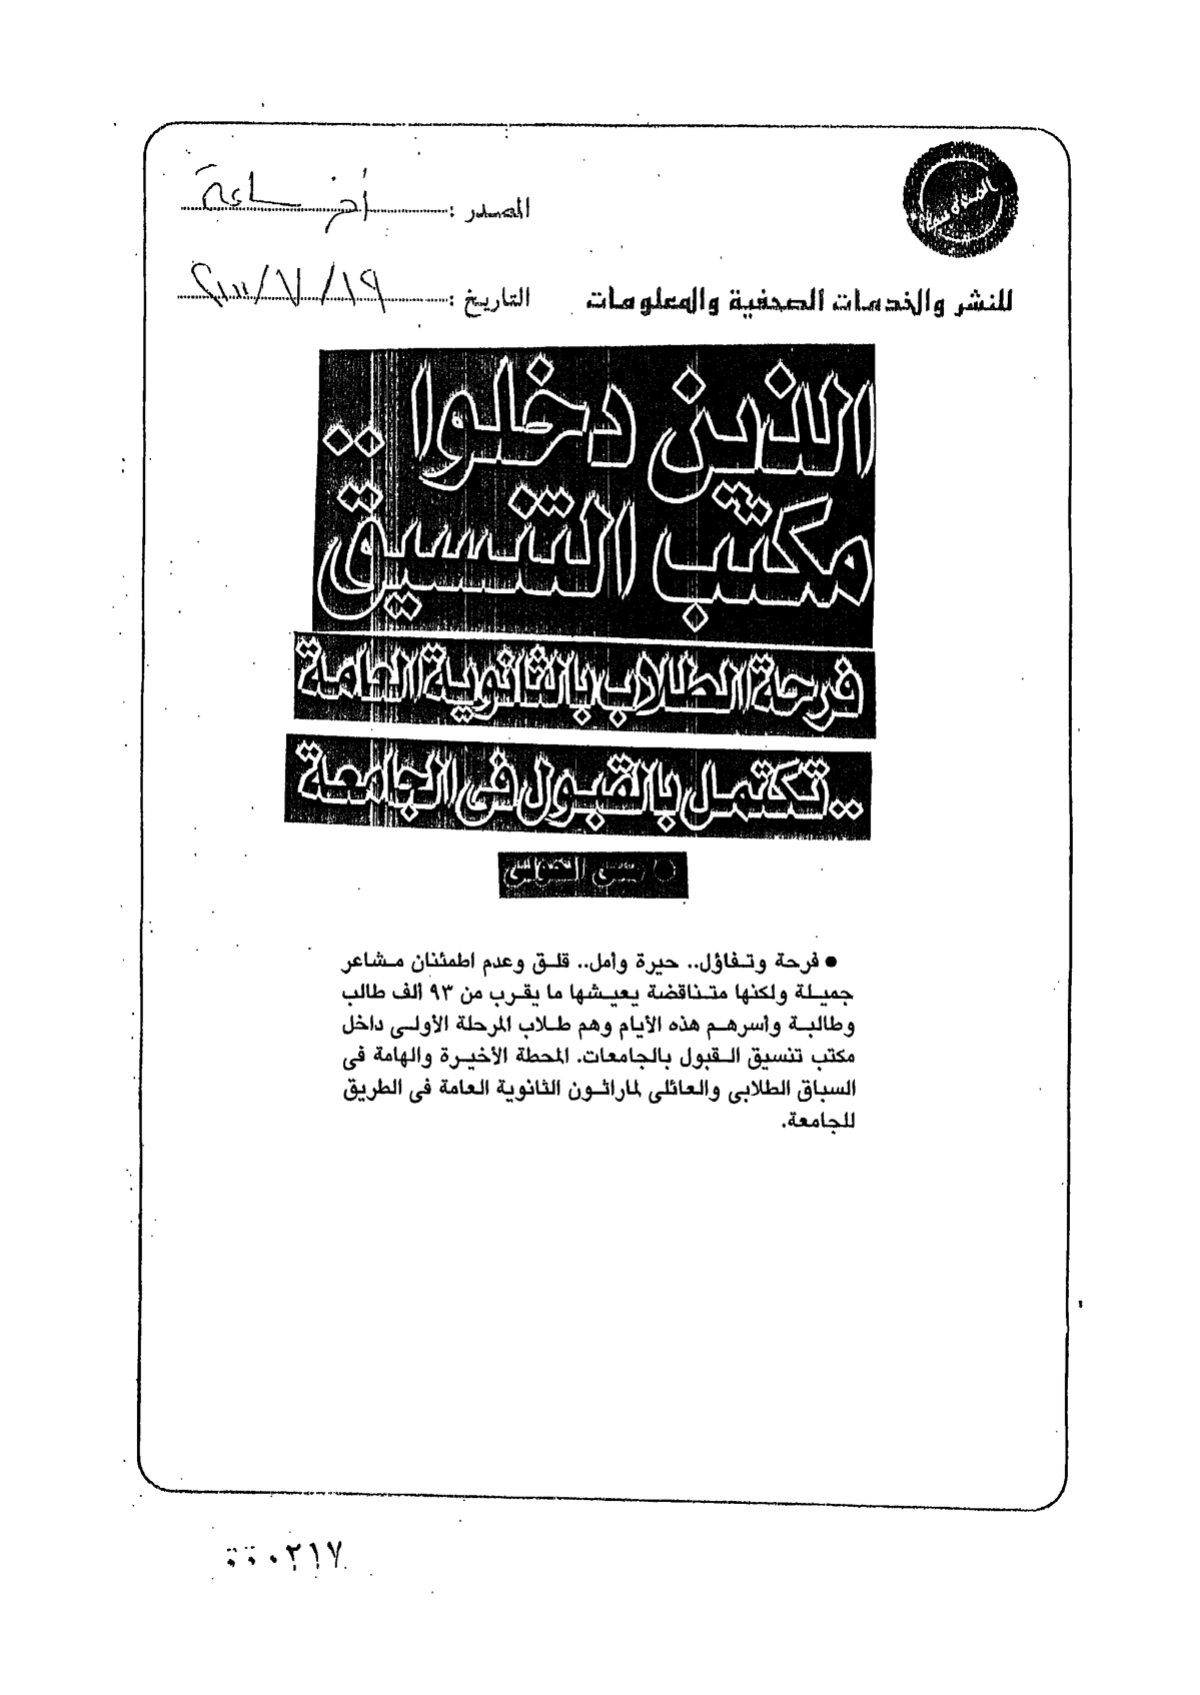 المصدر : أخر ساعة
للنشر والخدمات الصحفية والمعلومات
التاريخ : ١٩/٧/٢٠٠٠
الذين دخلوا ..
مكتب التنسيق
فرحة الطلاب بالثانوية العامة
.. تكتمل بالقبول فى الجامعة
● فرحة وتفاؤل.. حيرة وأمل.. قلق وعدم اطمئنان مشاعر
جميلة ولكنها متناقضة يعيشها ما يقرب من ٩٣ ألف طالب
وطالبة وأسرهم هذه الأيام وهم طلاب المرحلة الأولى داخل
مكتب تنسيق القبول بالجامعات. المحطة الأخيرة والهامة فى
السباق الطلابى والعائلى لماراثون الثانوية العامة فى الطريق
للجامعة.